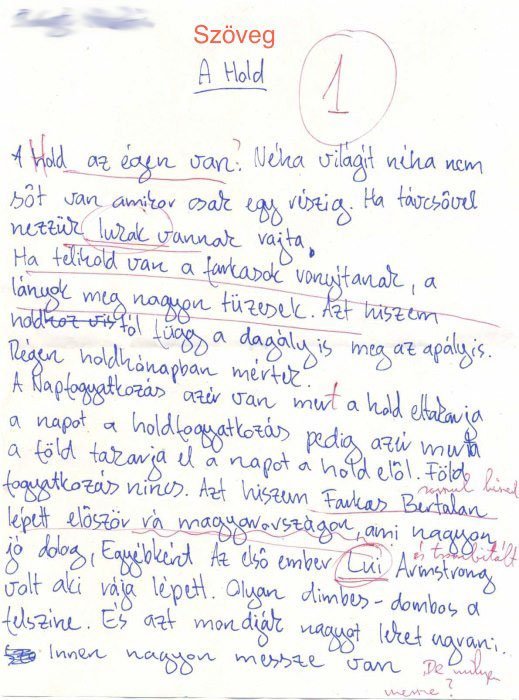 Szöveg
A Hold
1
A Hold az égen van? Néha világít néha nem
sőt van amikor csak egy részig. Ha távcsővel
nezzük lukak vannak rajta.
Ha telihold van a farkasok vonyítanak, a
lányok meg nagyon tüzesek. Azt hiszem
holdtól függ a dagály is meg az apályis.
Régen holdhónapban mértek.
A Napfogyatkozás azér van mert a hold eltakarja
a napot a holdfogyatkozás pedig azér mert
a föld takarja el a napot a hold elől. Föld
fogyatkozás nincs. Azt hiszem Farkas Bertalan
lépett először rá magyarországon, ami nagyon
jó dolog, Egyébként Az első ember Lui Armstrong
és trombitált
volt aki rája lépett. Olyan dimbes-dombos a
felszine. És azt mondják nagyot lehet ugrani.
Innen nagyon messze van
De milyen
messze?